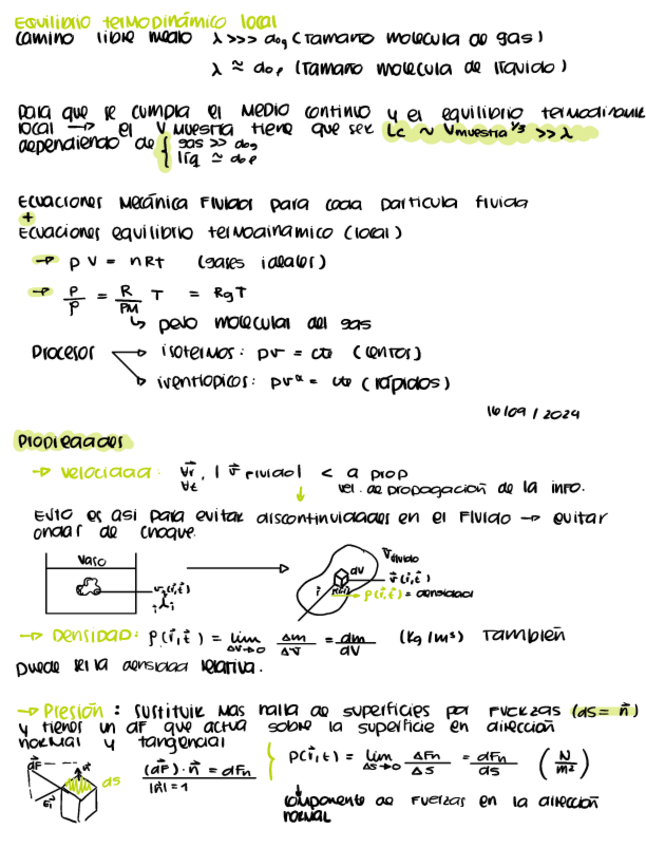 Equilibrio termodinámico local
Camino libre medio λ >>> dog (Tamaño molecula de gas)
λ ≈ doℓ (Tamaño molecula de líquido)
para que se cumpla el medio continuo y el equilibrio termodinamic
local → el V muestra tiene que ser Lc ~ Vmuestra^1/3 >> λ
dependiendo de { gas >> dog
líq ≈ doℓ
Ecuaciones Mecánica Fluidos para cada partícula fluida
+
Ecuaciones equilibrio termodinamico (local)
→ p V = nRt (gases ideales)
→ P/ρ = R/PM T = RgT
↳ peso molecular del gas
Procesos → isotermos: pv = cte (lentos)
→ isentropicos: pv^α = cte (rápidos)
16/09/2024
Propiedades
→ velocidad: ∀r⃗, ∀t | v⃗ fluido| < a prop
↓ vel. de propagación de la info.
Esto es así para evitar discontinuidades en el fluido → evitar
ondas de choque.
Vaso
V fluido
dV
v⃗ (r⃗,t)
ρ(r⃗,t) = densidad
→ Densidad: ρ(r⃗,t) = lim ΔV→0 Δm/ΔV = dm/dV (kg/m³) También
puede ser la densidad relativa.
→ Presión: sustituir más malla de superficies por fuerzas (ds = n⃗)
y tienes un dF que actúa sobre la superficie en dirección
normal y tangencial
dF
n⃗
ds
(dF⃗)·n⃗ = dFn
|n⃗| = 1
P(r⃗,t) = lim Δs→0 ΔFn/Δs = dFn/ds (N/m²)
↳ componente de fuerzas en la dirección
normal